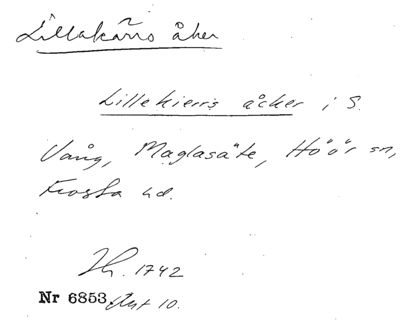 Lillakärrs åker
Lillekierrs åcker i S.
Vång, Maglasäte, Höör sn,
Frosta hd.
Lh. 1742
Nr 6853 Akt 10.